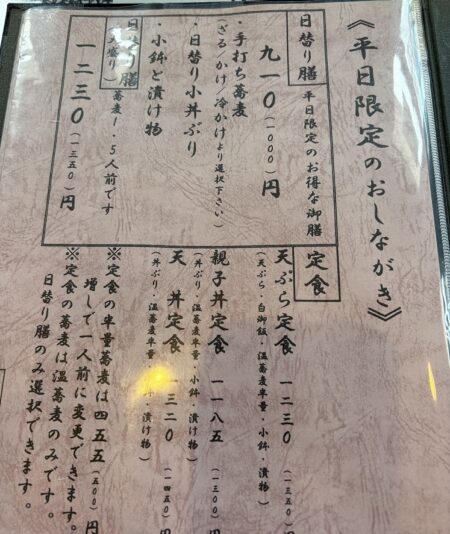 《平日限定のおしながき》
日替り膳 平日限定のお得な御膳
九一〇(一〇〇〇)円
・手打ち蕎麦
(ざる/かけ/冷かけより選択下さい)
・日替り小丼ぶり
・小鉢と漬け物
日替り膳
(大盛り) 蕎麦1.5人前です
一二三〇(一三五〇)円
定食
天ぷら定食 一二三〇(一三五〇)
(天ぷら・白御飯・温蕎麦半量・小鉢・漬け物)
親子丼定食 一一八五(一三〇〇)
(丼ぶり・温蕎麦半量・小鉢・漬け物)
天丼定食 一三二〇(一四五〇)
(丼ぶり・温蕎麦半量・小鉢・漬け物)
※定食の半量蕎麦は四五五(五〇〇)円
増しで一人前に変更できます。
※定食の蕎麦は温蕎麦のみです。
日替り膳のみ選択できます。